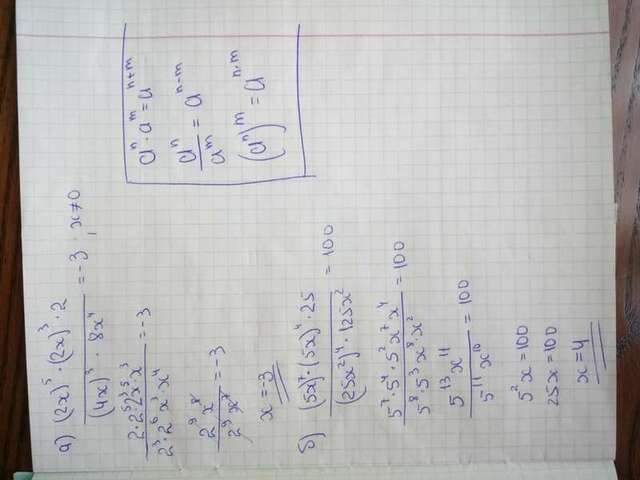 a) (2x)⁵ · (2x)³ · 2 / (4x)³ · 8x⁴ = -3, x ≠ 0
2 · 2⁵ 2³ x⁵ x³ / 2³ · 2⁶ x³ x⁴ = -3
2⁹ x⁸ / 2⁹ x⁷ = -3
x = -3
δ) (5x)⁷ · (5x)⁴ · 25 / (25x²)⁴ · 125x² = 100
5⁷ · 5⁴ · 5² x⁷ x⁴ / 5⁸ · 5³ x⁸ · x² = 100
5¹³ x¹¹ / 5¹¹ x¹⁰ = 100
5² x = 100
25x = 100
x = 4
aⁿ · aᵐ = aⁿ⁺ᵐ
aⁿ / aᵐ = aⁿ⁻ᵐ
(aⁿ)ᵐ = aⁿ·ᵐ